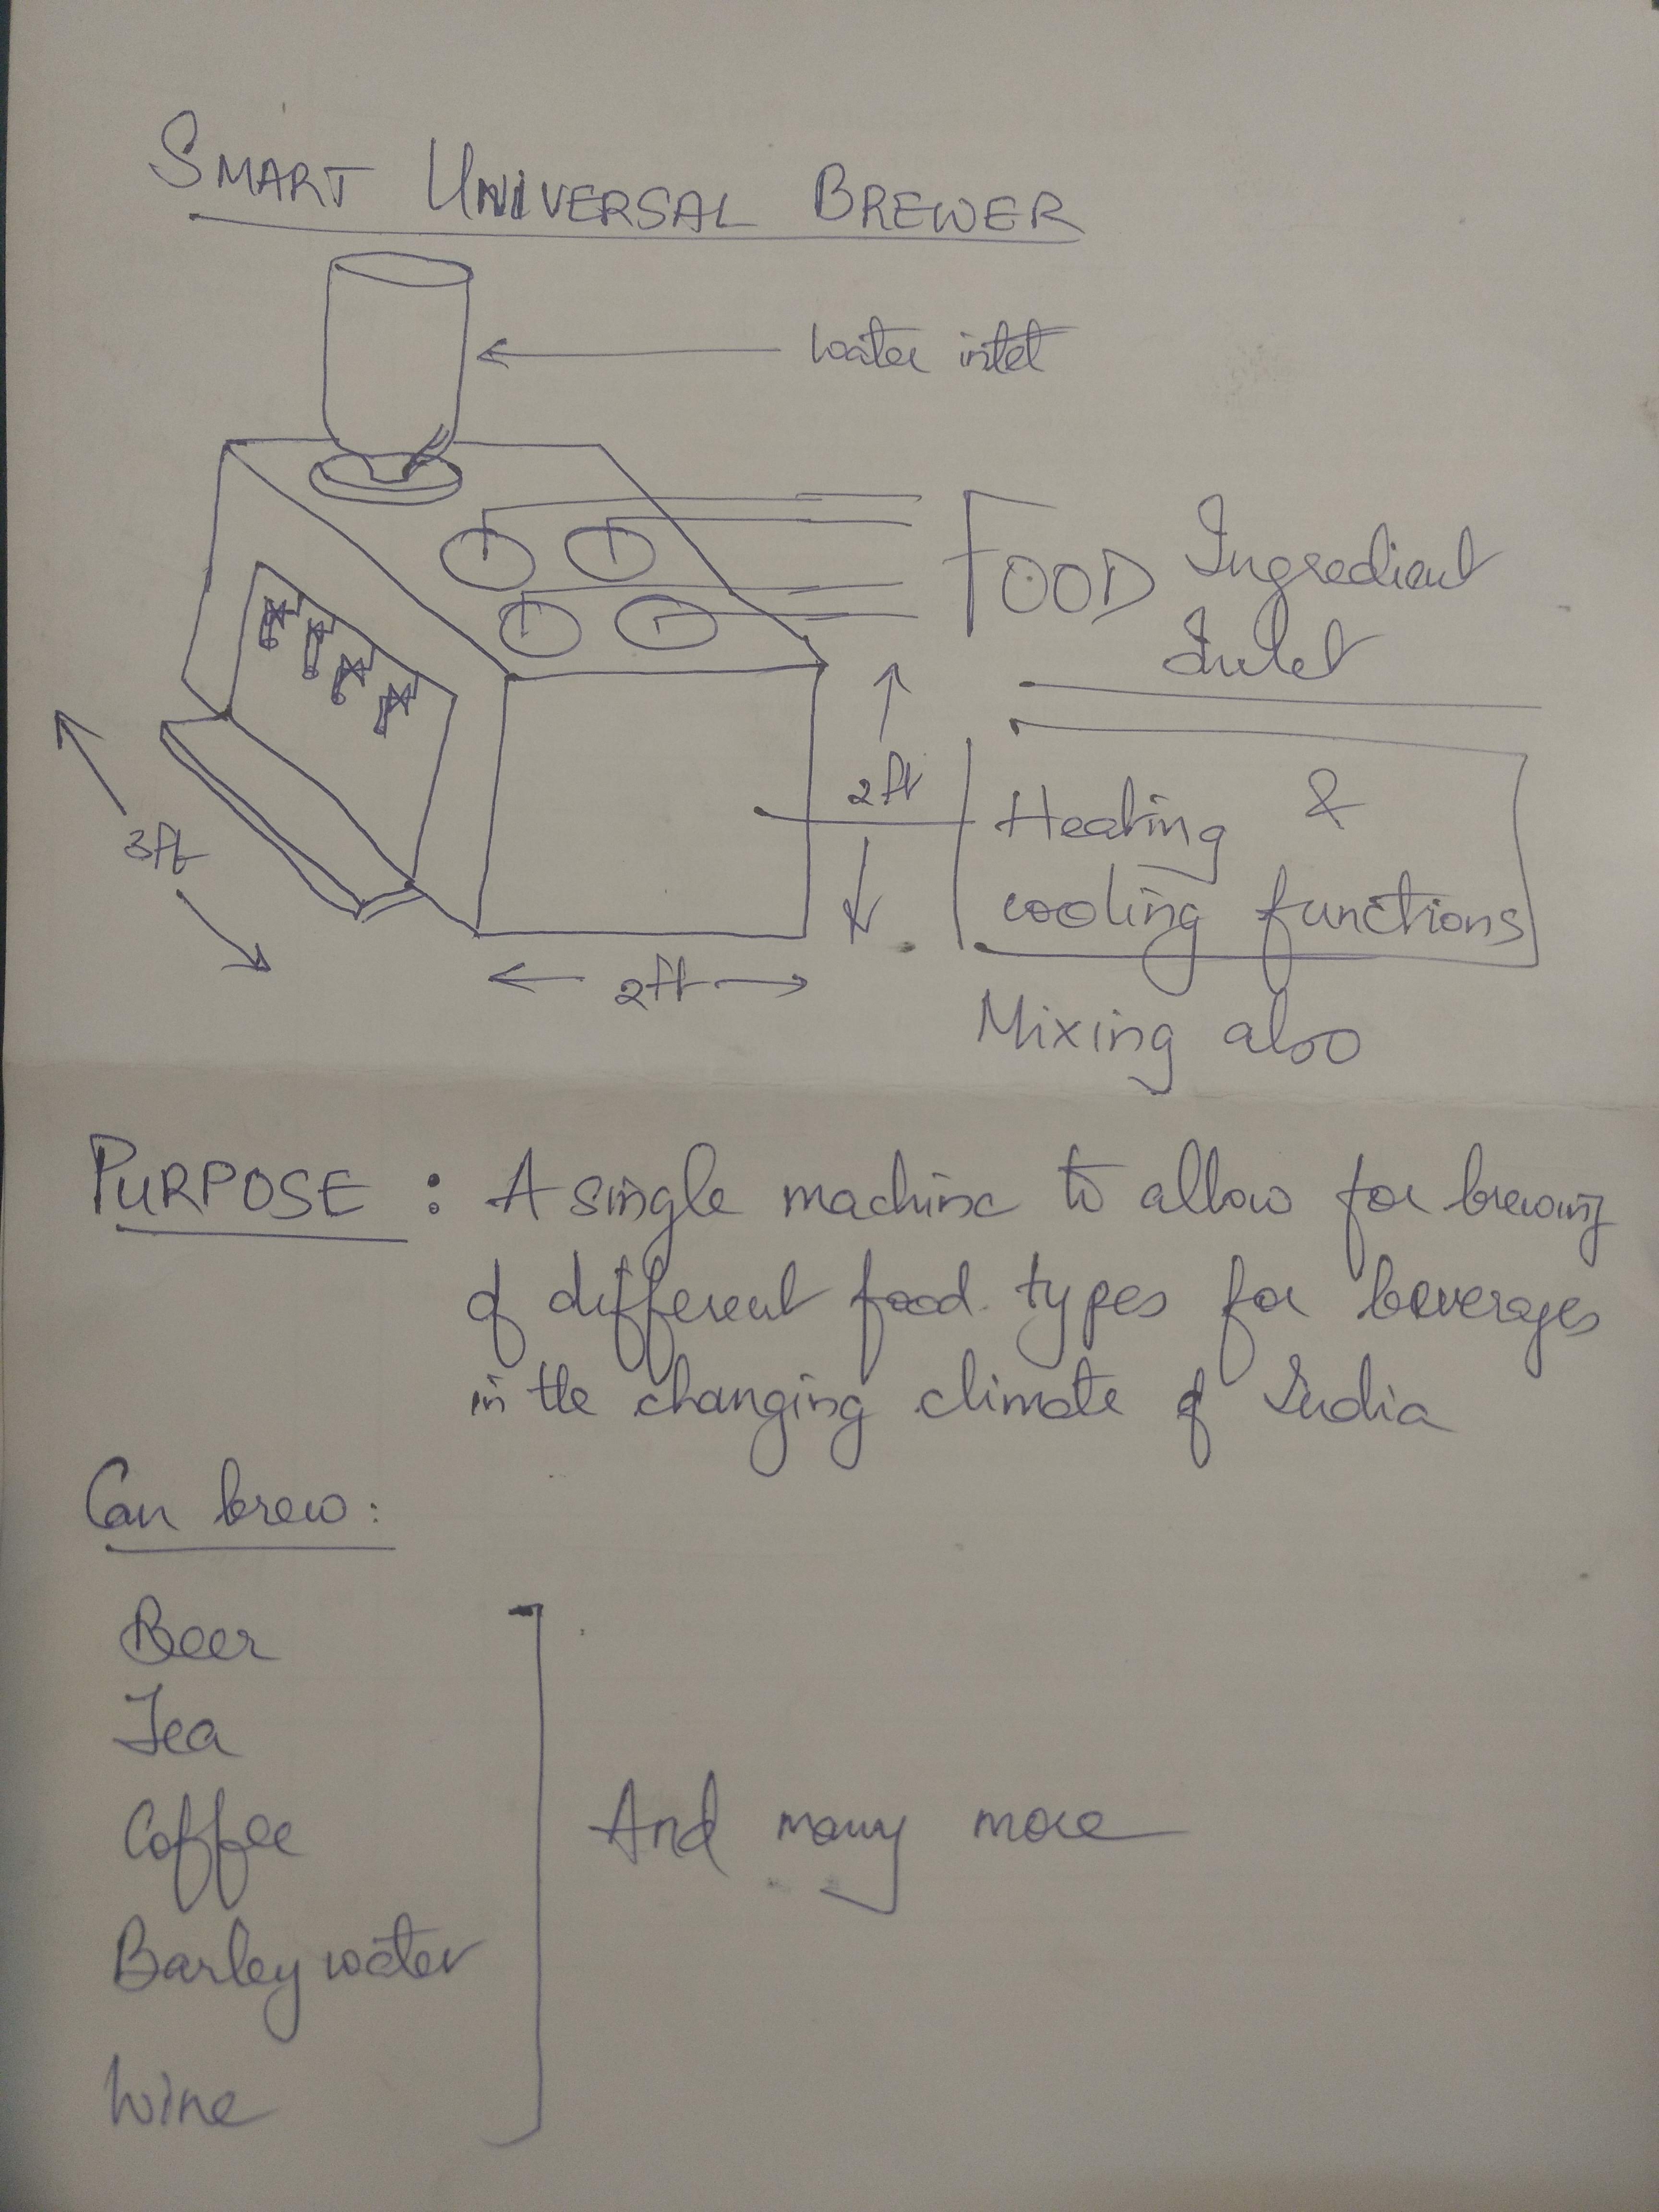 SMART UNIVERSAL BREWER
water inlet
FOOD Ingredient
Inlet
2ft
Heating &
cooling functions
3ft
2ft
Mixing also
PURPOSE : A single machine to allow for brewing
of different food types for beverages
in the changing climate of India
Can brew:
Beer
Tea
Coffee
And many more
Barley water
Wine